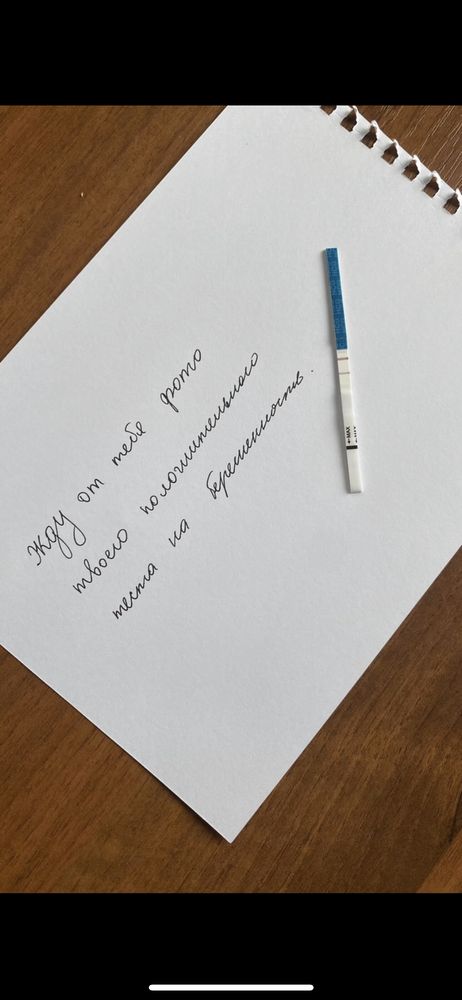 Жду от тебя фото
твоего положительного
теста на беременность.
MAX